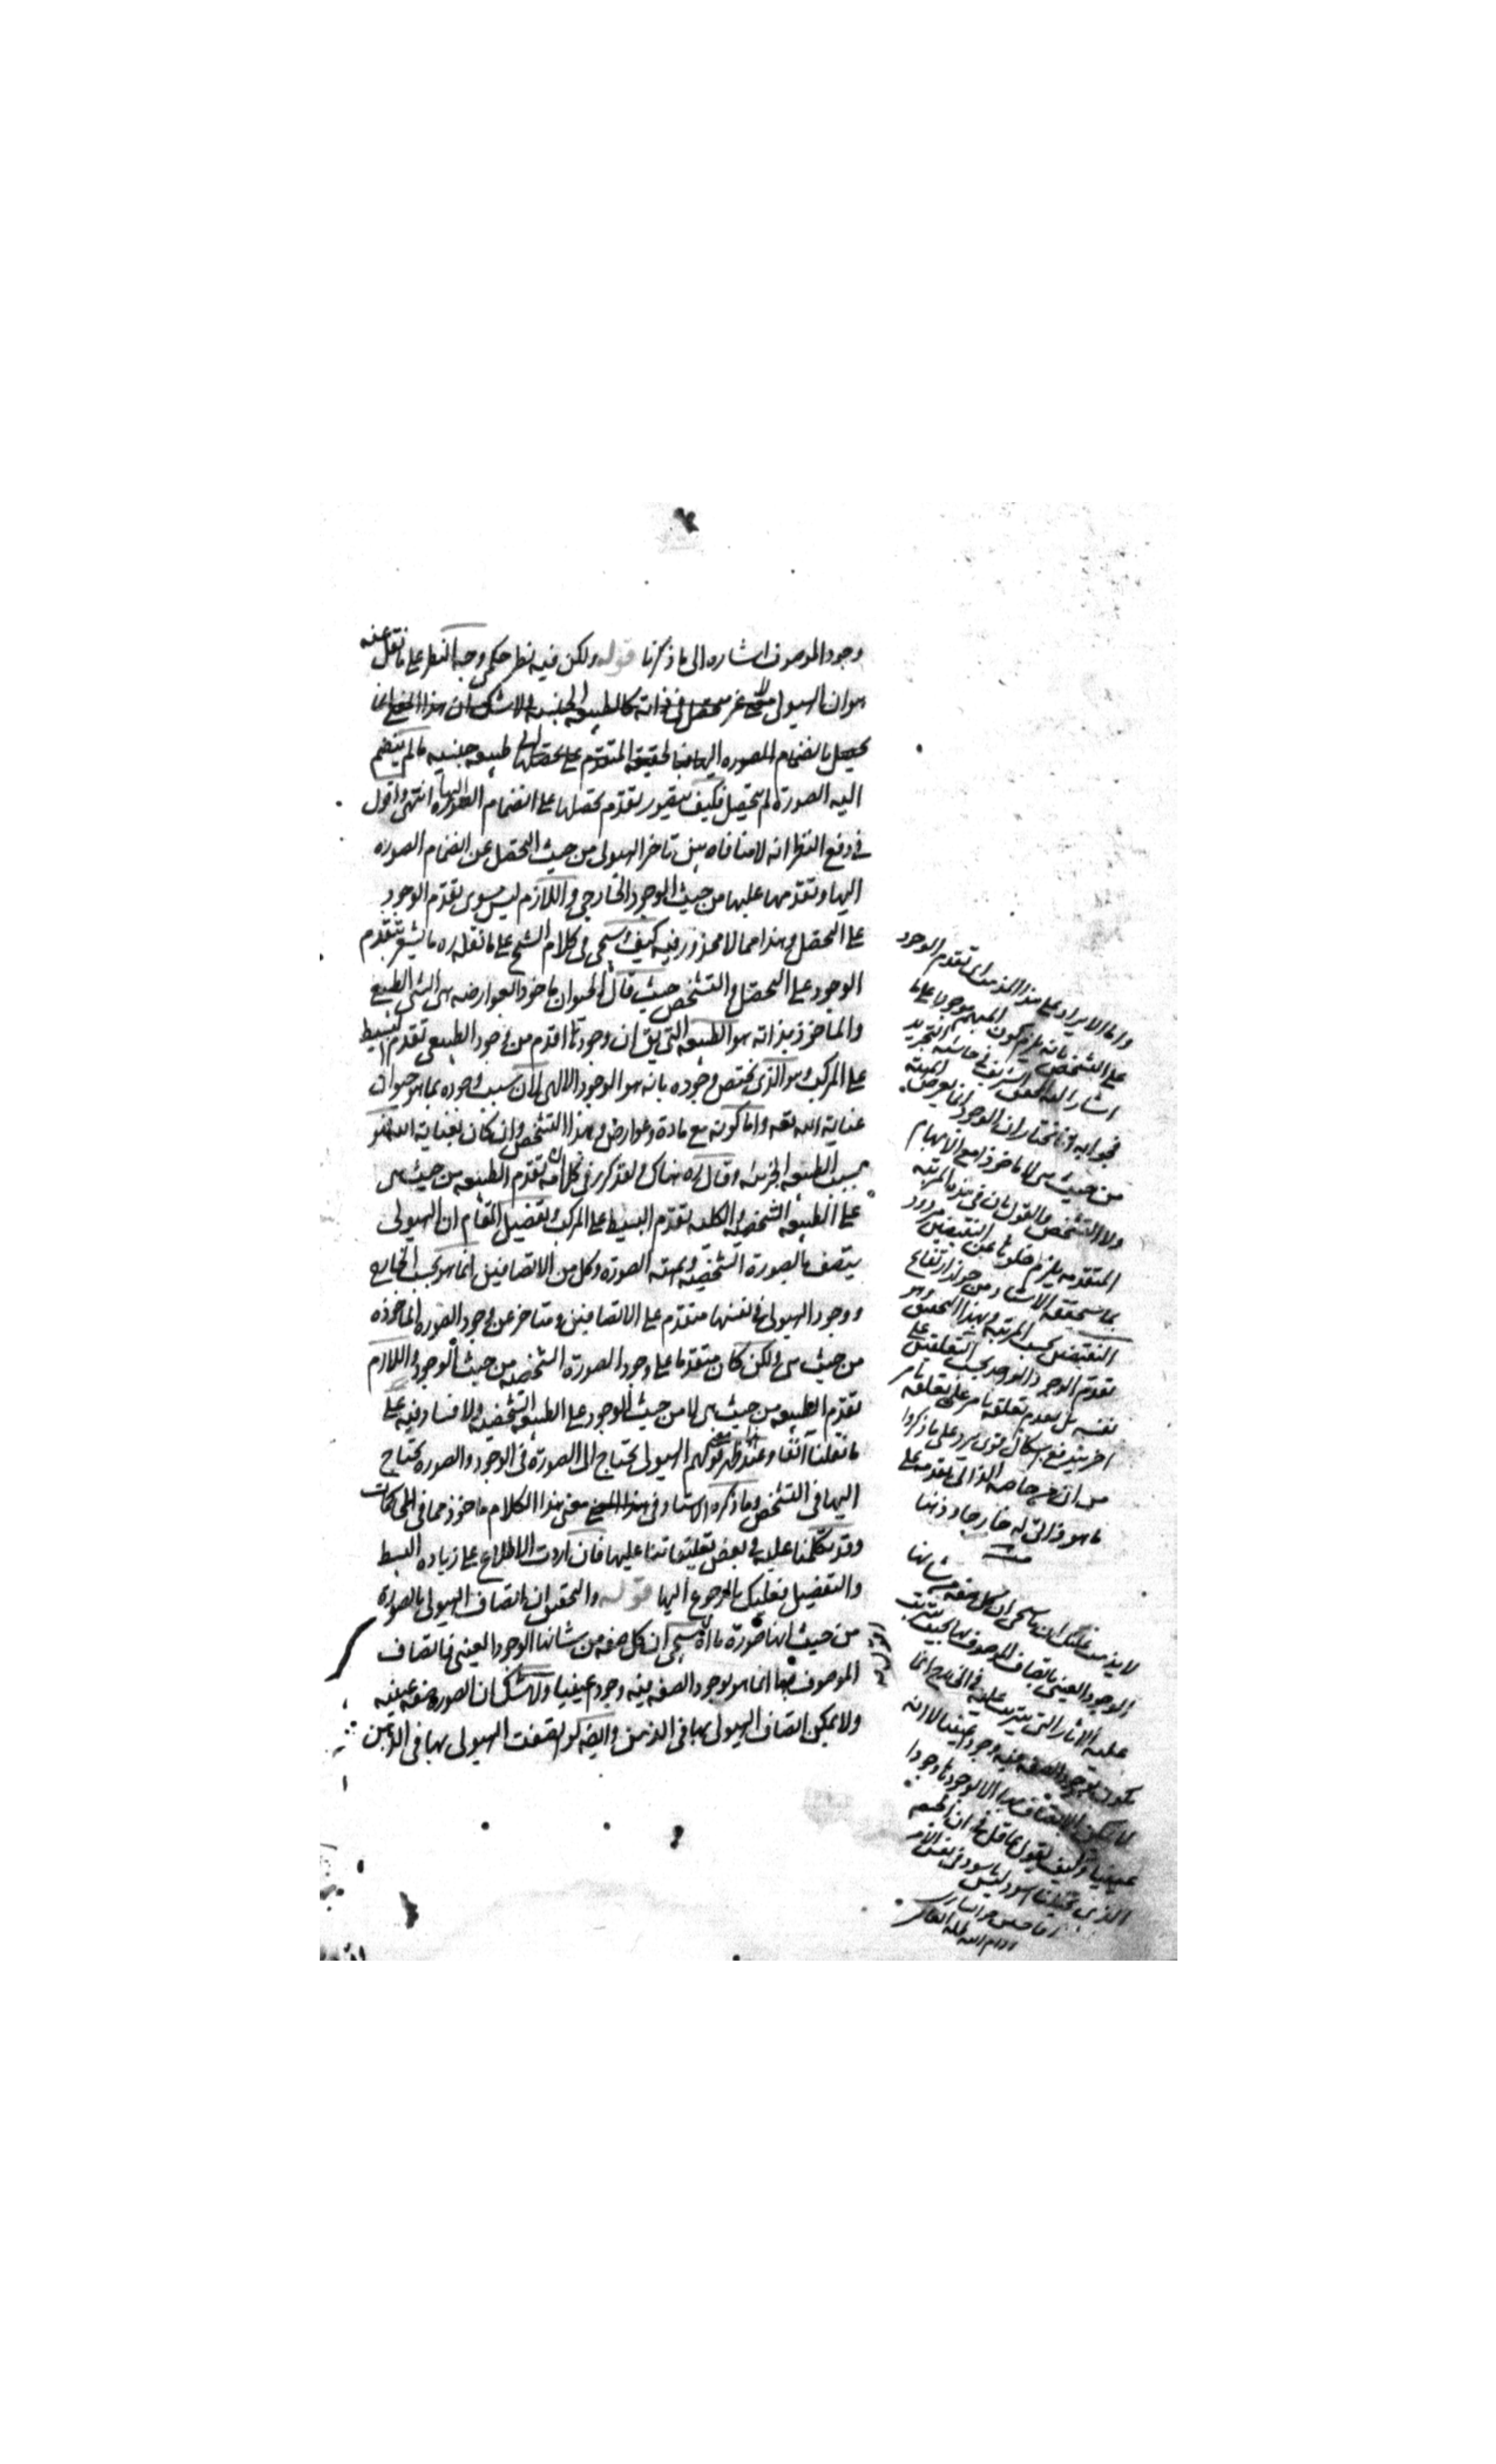 وجود الموصوف اشاره الى ما ذكرنا قوله ولكن فيه نظر حكمى وجه النظر على ما نقل عنه
هو ان الهيولى غير متحصل فى ذاته كالطبيعه الجنسيه ولا شك ان هذا انما
يحصل بانضمام الصوره اليها فالحقيقه المتقدم على تحصلها طبيعه جنسيه ما لم ينضم
اليه الصورة لم يتحصل فكيف يتصور تقدم تحصلها على انضمام الصورة اليها انتهى واقول
فى دفع النظر انه لا منافاه بين تاخر الهيولى من حيث التحصل عن انضمام الصوره
اليها وتقدمها عليها من حيث الوجود الخارجى واللازم ليس سوى تقدم الوجود
على التحصل وهذا مما لا محذور فيه كيف وسيجى فى كلام الشيخ على ما نقله ره ما يشعر بتقدم
الوجود على التحصل والتشخص حيث قال الحيوان ماخوذا بعوارضه هى الشى الطبيعى
والماخوذ بذاته هو الطبيعه التى يق ان وجودها اقدم من وجود الطبيعى تقدم البسيط
على المركب وهو الذى يختص وجوده بانه هو الوجود الالهى لان سبب وجوده بما هو حيوان
عناية الله تعه واما كونه مع مادة وعوارض وهذا التشخص وان كان بعناية الله فهو
بسبب الطبيعه الجزئيه وقال ره هناك ولقد تكرر فى كلامه تقدم الطبيعه من حيث هى
على الطبيعه الشخصيه والكليه تقدم البسيط على المركب وتفصيل المقام ان الهيولى
يتصف بالصورة الشخصيه وبمهيه الصورة وكل من الاتصافين انما هو بحسب الخارج
ووجود الهيولى فى نفسها متقدم على الاتصافين ومتاخر عن وجود الصوره الماخوذه
من حيث هى ولكن كان متقدما على وجود الصورة الشخصيه من حيث الوجود واللازم
تقدم الطبيعه من حيث هى لا من حيث الوجود على الطبيعه الشخصيه ولا فساد فيه على
ما نقلنا آنفا وعند هذا ظهر معنى قولهم الهيولى تحتاج الى الصورة فى الوجود والصورة تحتاج
اليها فى التشخص وما ذكره الاستاد فى معنى هذا الكلام ماخوذ مما فى المحاكمات
وقد تكلمنا عليه فى بعض تعليقاتنا عليها فان اردت الاطلاع على زياده البسط
والتفصيل فعليك بالرجوع اليها قوله والتحقيق ان اتصاف الهيولى بالصورة
من حيث انها صورة ما اه سيجى ان كل صفه من شانها الوجود العينى فاتصاف
الموصوف بها انما هو بوجود الصفه فيه وجودا عينيا ولا شك ان الصوره صفه عينيه
ولا يمكن اتصاف الهيولى بها فى الذهن وايضه لو اتصفت الهيولى بها فى الذهن
واما الايراد على هذا المذهب اى تقدم الوجود
على التشخص بانه يلزم كون المبهم موجودا على ما
اشار اليه المحقق الشريف فى حاشية التجريد
فجوابه انا نختار ان الوجود انما يعرض المهيه
من حيث هى لا ماخوذا مع الابهام
ولا التشخص والقول بان فى هذه المرتبه
المتقدمه يلزم خلوها عن النقيضين مردود
بما حققه الاستاد من جواز ارتفاع
النقيضين بحسب المرتبه وبهذا التحقيق وهو
تقدم الوجود الواحد بحسب التعلقين على
نفسه بل تقدم تعلقه بامر على تعلقه بامر
اخر يندفع اشكال قوى يرد على ما ذكروا
من ان خاصه الذاتى تقدمه على
ما هو ذاتى له خارجا وذهنا
لا يذهب عليك ان ما سيجى ان كل صفه من شانها
الوجود العينى فاتصاف الموصوف بها بحيث يترتب
عليه الاثار التى يترتب عليه فى الخارج انما
يكون بوجود الصفه فيه وجودا عينيا لا انه
لا يمكن الاتصاف بها الا بوجودها وجودا
عينيا وكيف يقول عاقل ان الجسم
الذى تخيلنا اسود ليس باسود فى نفس الامر
ادام الله ظله العالى